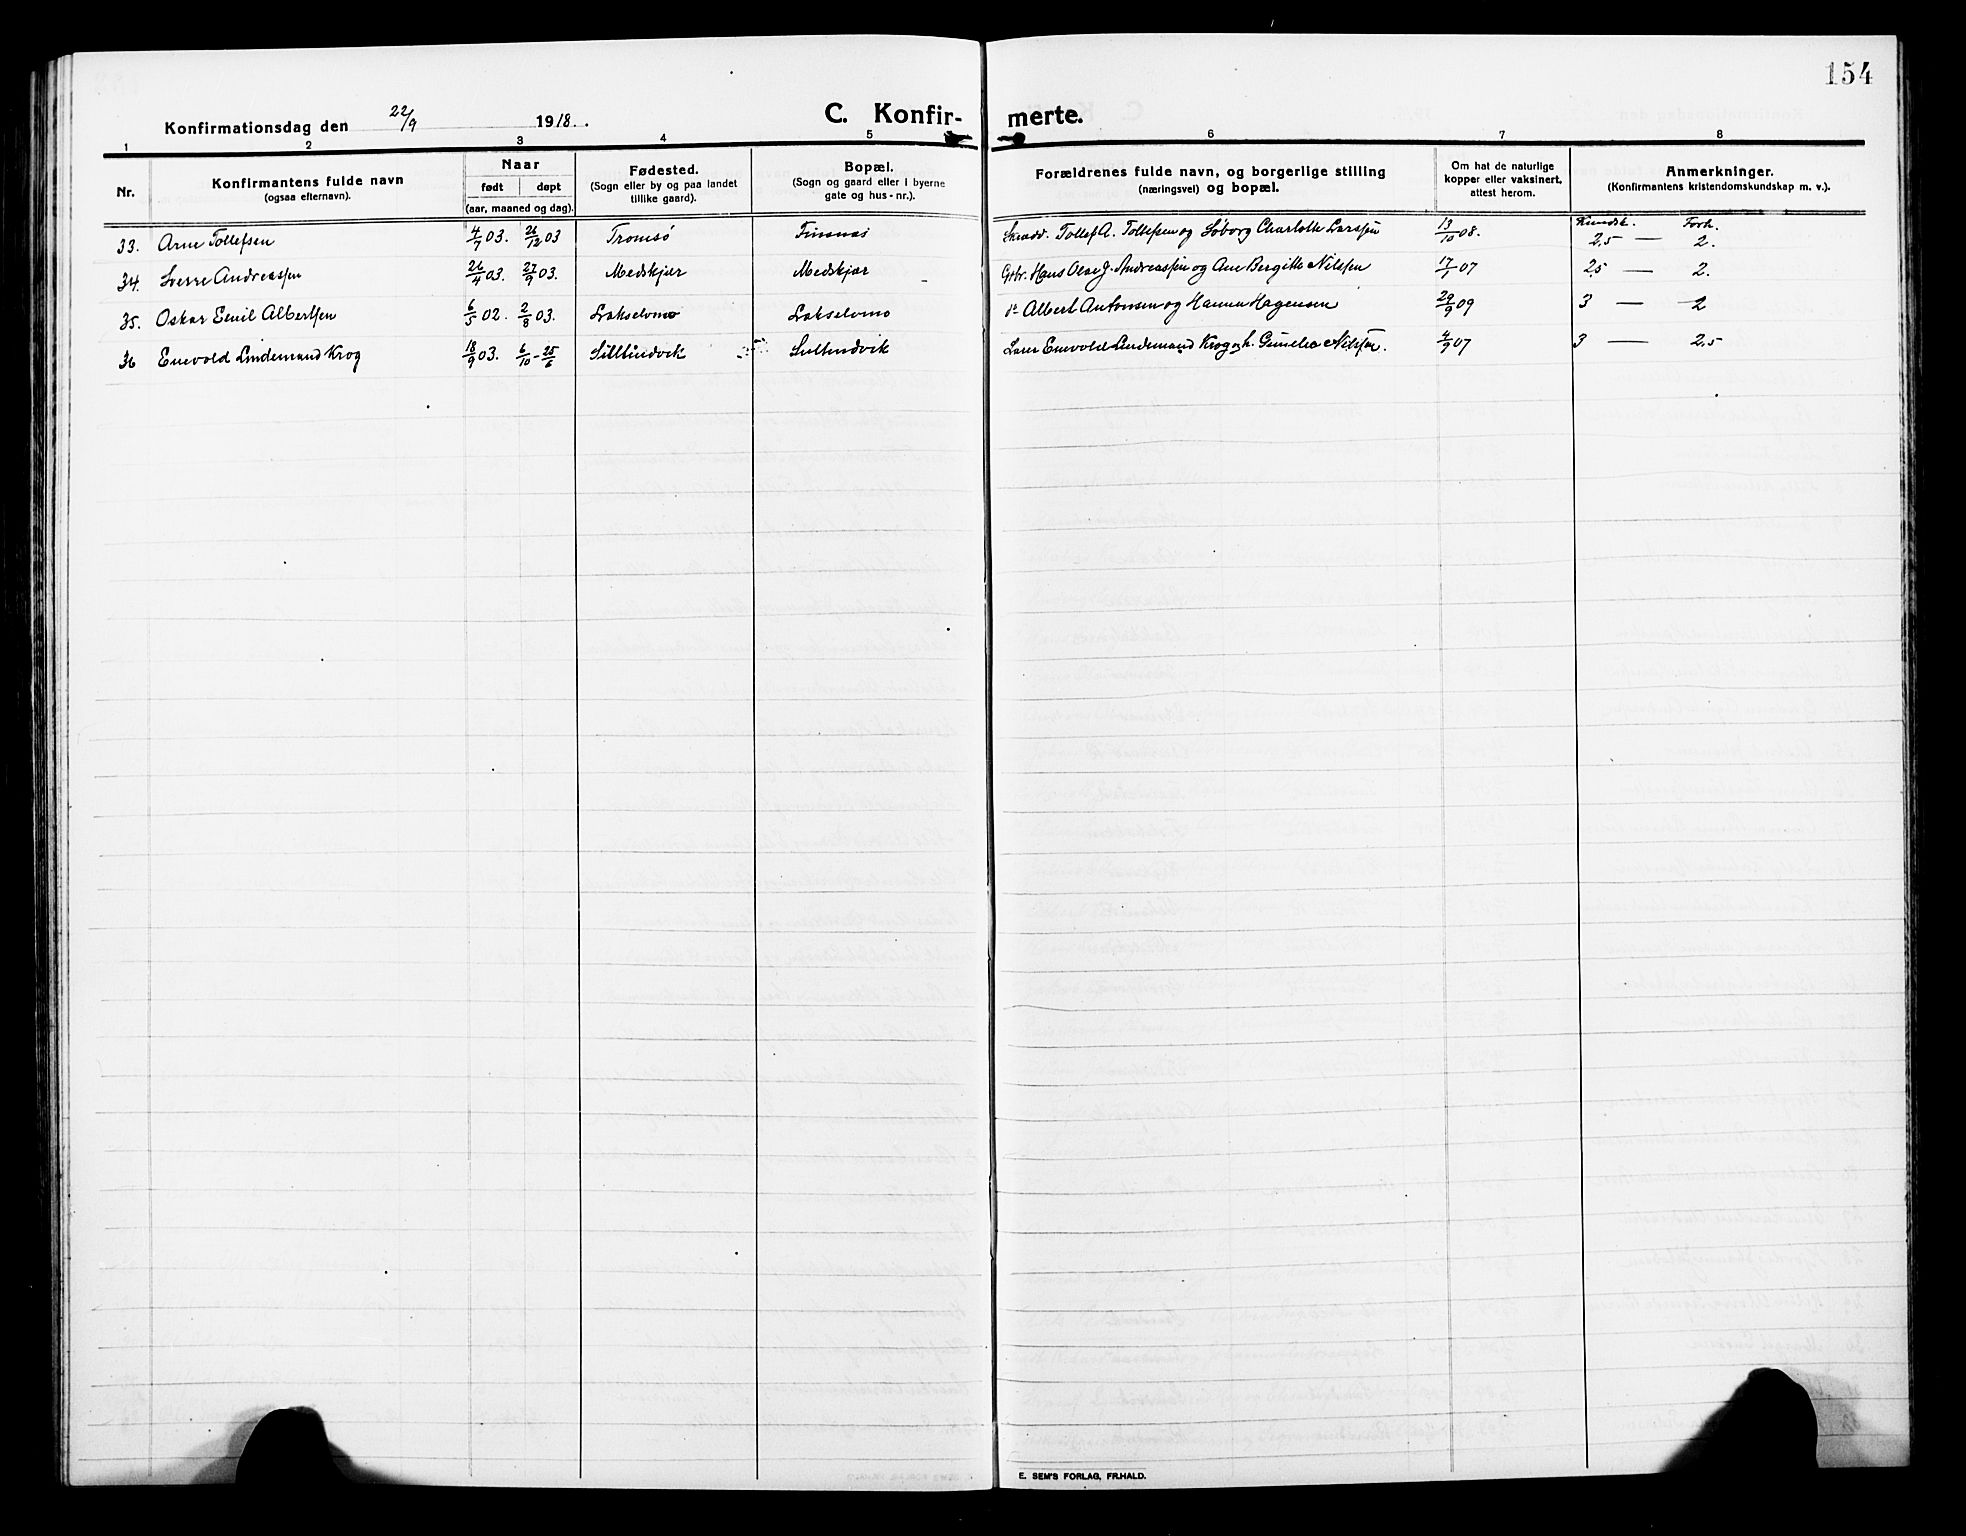 154
Konfirmationsdag den 22/9 1918.
C. Konfir- merte.
1 2 3 4 5 6 7 8
Nr.
Konfirmantens fulde navn
(ogsaa efternavn).
Naar
født døpt
(aar, maaned og dag).
Fødested.
(Sogn eller by og paa landet
tillike gaard).
Bopæl.
(Sogn og gaard eller i byerne
gate og hus-nr.).
Forældrenes fulde navn, og borgerlige stilling
(næringsvei) og bopæl.
Om hat de naturlige
kopper eller vaksinert,
attest herom.
Anmerkninger.
(Konfirmantens kristendomskundskap m. v.).
Kundsk. Forh.
33. Arne Tollefsen 4/7 03. 26/12 03 Tromsø Finsnes Skradd. Tollef A. Tollefsen og Løborg Charlotte Larssen 13/10 08. 2,5 — 2.
34. Sverre Andreassen 26/4 03. 27/9 03. Medskjær Medskjær Gbr. Hans Olav J. Andreassen og Ane Bergitte Nilssen 17/1 07 2,5 — 2.
35. Oskar Emil Albertsen 6/5 02. 2/8 03. Lakselvmo Lakselvmo Albert Antonsen og Hanna Hagensen 29/9 09 3 — 2
36 Enevold Lindemand Krog 18/9 03. 6/10 - 25/6 Sultindvik Sultindvik Enevold Lindemand Krog og h. Nilssen. 4/9 07 3 — 2,5
E. SEM'S FORLAG, FR.HALD.